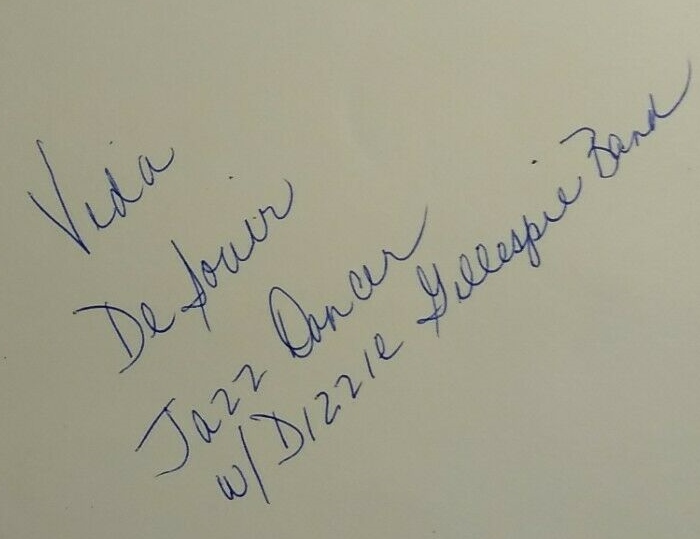 Vida
De Souir
Jazz Dancer
w/Dizzie Gillespie Band